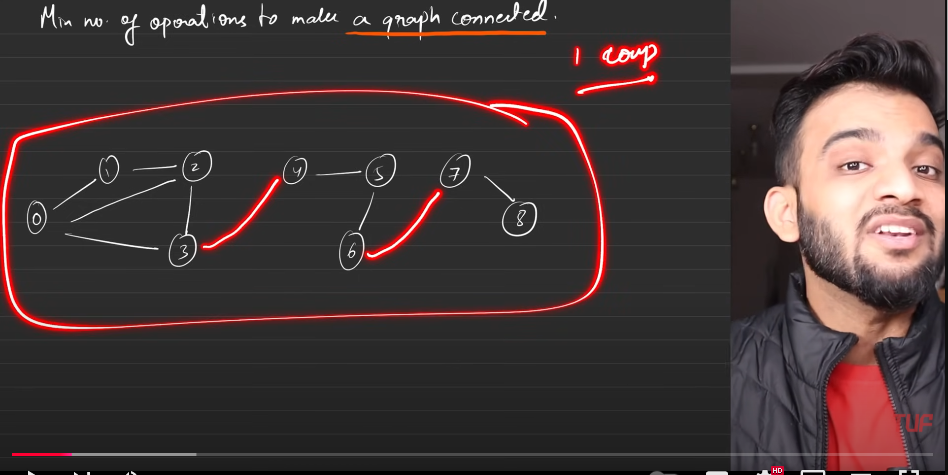 Min no. of operations to make a graph connected.
1 comp
1 2 4 5 7
0 8
3 6
TUF
HD